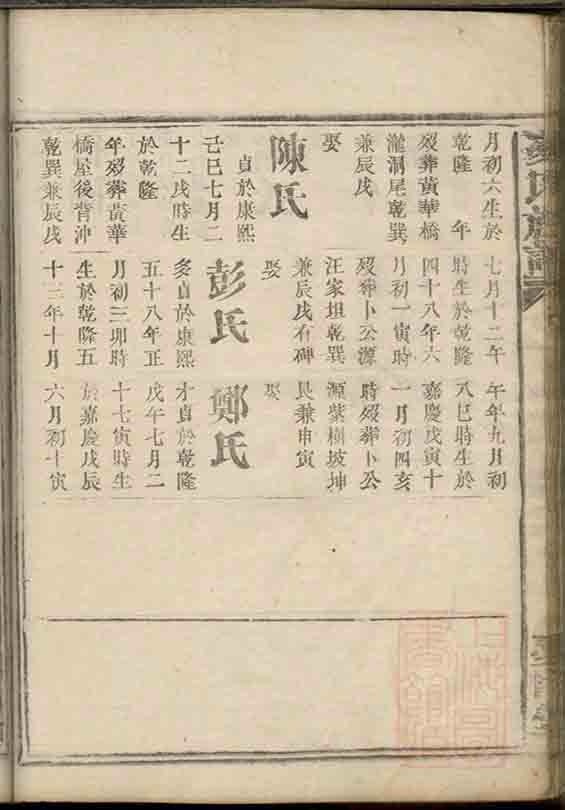 月初六生於
乾隆　年
歿葬黃華橋
瀧洞尾乾巽
兼辰戌
娶
陳氏
貞於康熙
己巳七月二
十二戌時生
於乾隆
年歿葬黃華
橋屋後背沖
乾巽兼辰戌
七月十二午
時生於乾隆
四十八年六
月初一寅時
歿葬卜公源
汪家坦乾巽
兼辰戌有碑
娶
彭氏
多貞於康熙
五十八年正
月初三卯時
生於乾隆五
十三年十月
午年九月初
八巳時生於
嘉慶戊寅十
一月初四亥
時歿葬卜公
源紫樹坡坤
艮兼申寅
娶
鄭氏
才貞於乾隆
戊午七月二
十七寅時生
於嘉慶戊辰
六月初十寅
氏族譜